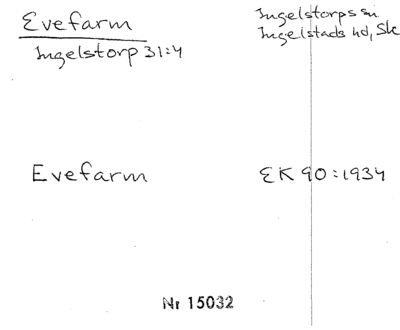 Evefarm
Ingelstorp 31:4
Ingelstorps sn
Ingelstads hd, Sk
Evefarm
EK 90:1934
Nr 15032